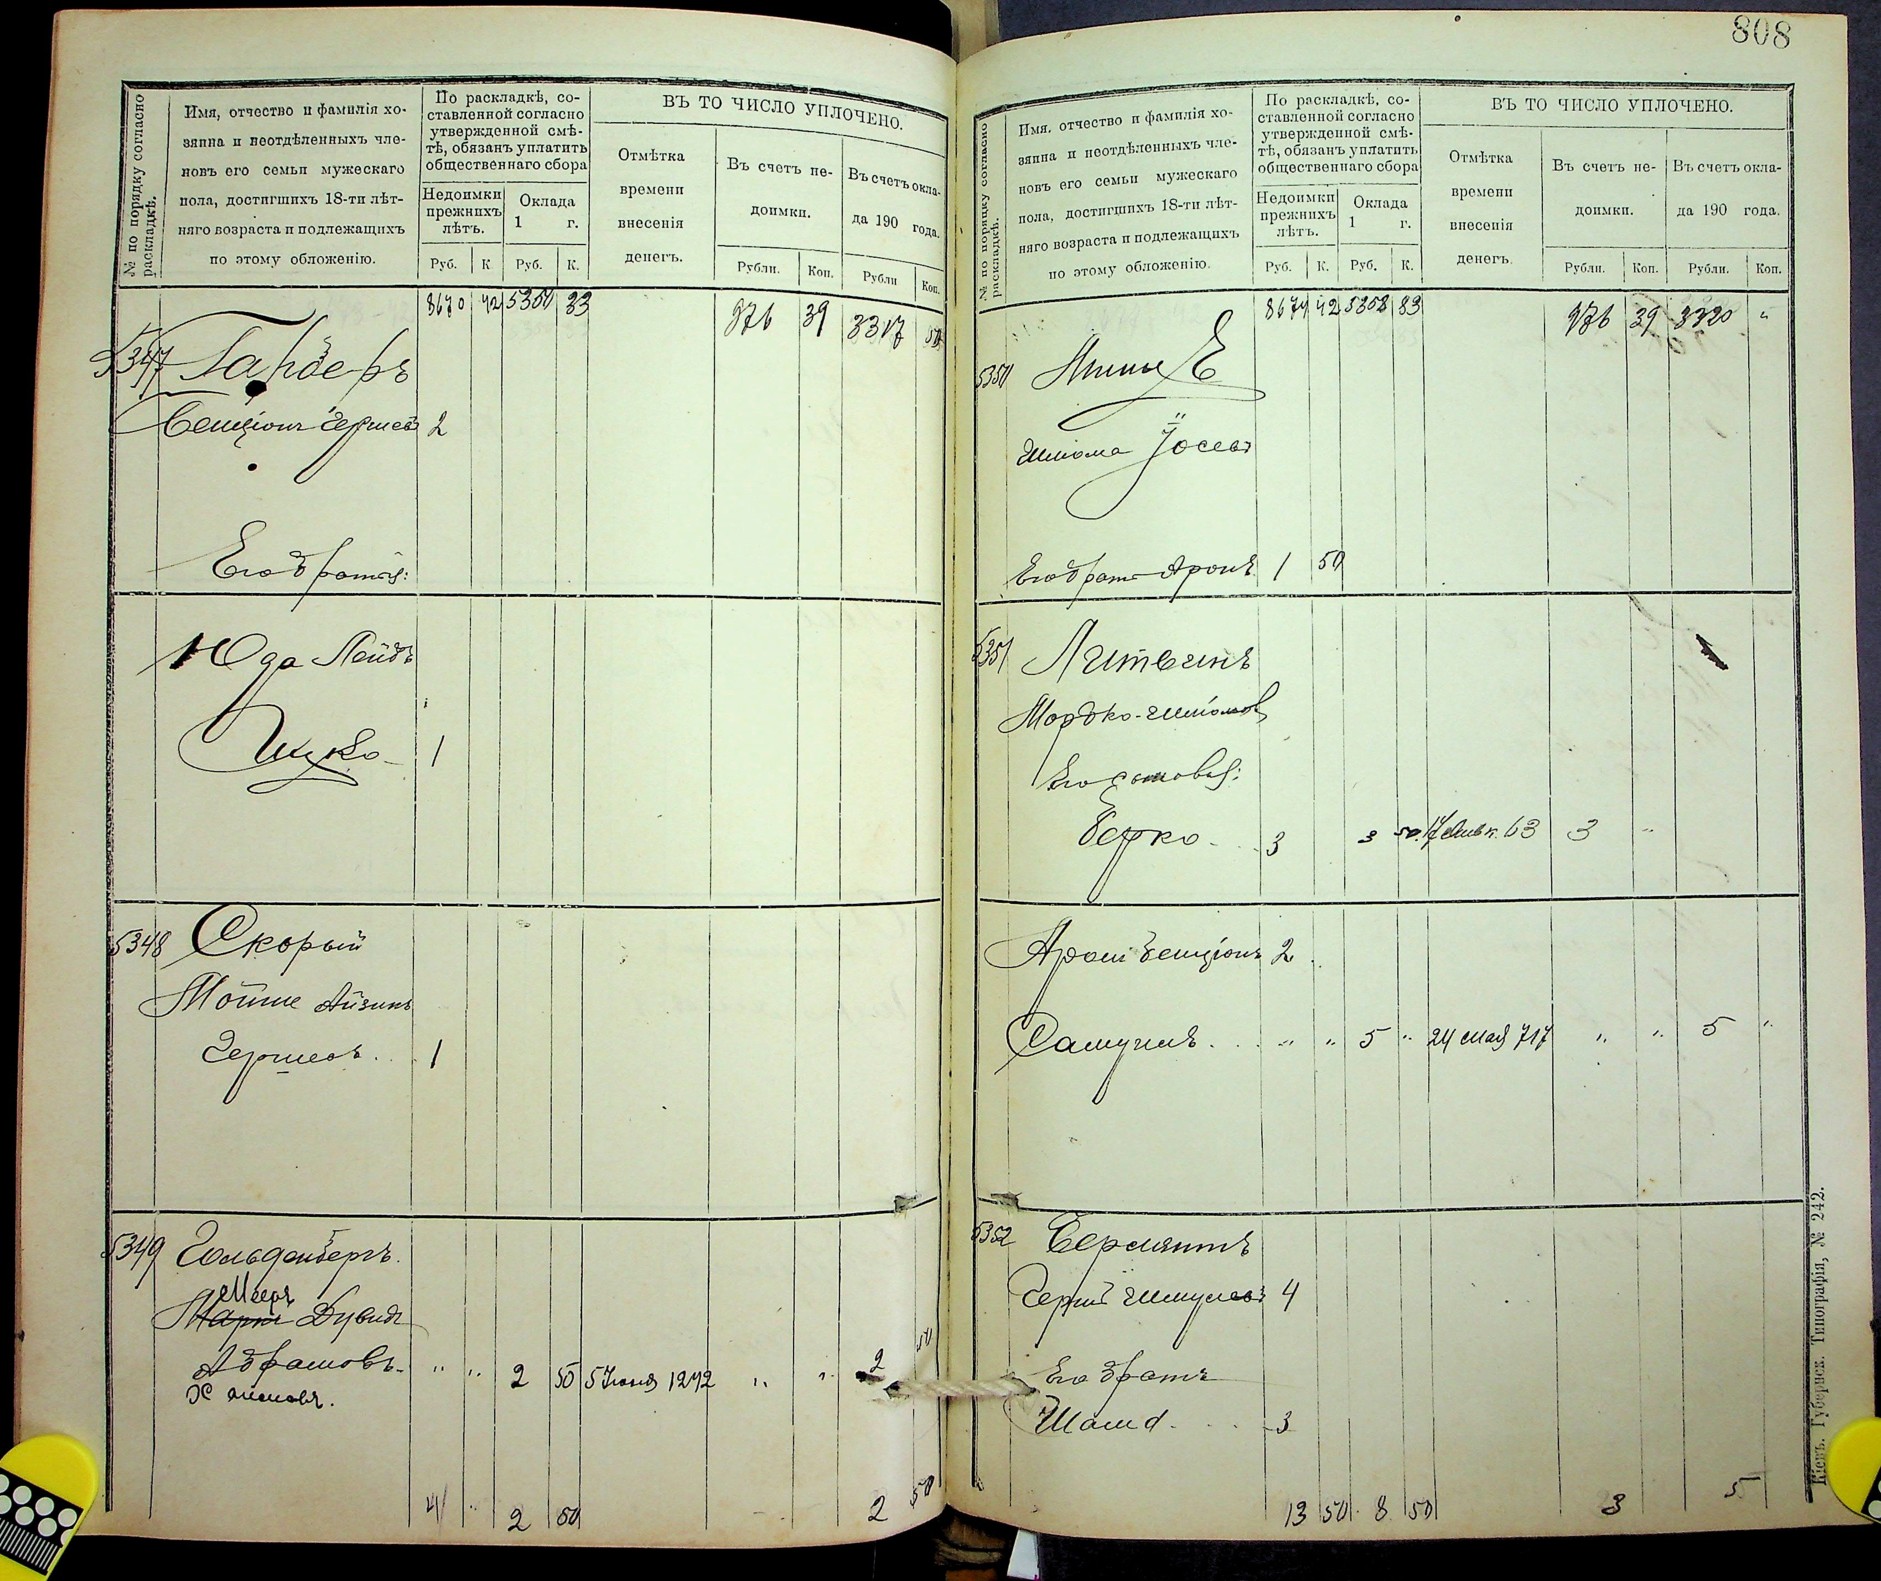 808
№ по порядку согласно раскладкѣ.
Имя, отчество и фамилія хо-
зяина и неотдѣленныхъ чле-
новъ его семьи мужескаго
пола, достигшихъ 18-ти лѣт-
няго возраста и подлежащихъ
по этому обложенію.
По раскладкѣ, со-
ставленной согласно
утвержденной смѣ-
тѣ, обязанъ уплатить
общественнаго сбора
Недоимки
прежнихъ
лѣтъ.
Оклада
1 г.
Руб. К. Руб. К.
ВЪ ТО ЧИСЛО УПЛОЧЕНО.
Отмѣтка
времени
внесенія
денегъ.
Въ счетъ не-
доимки.
Въ счетъ окла-
да 190 года.
Рубли. Коп. Рубли Коп.
8670 42 5350 33 976 39 3317 50
5347
Бенціонъ Гершев 2
Его братья:
Юда Лейбъ
Ицко 1
5348 Скорый
Мойше Айзикъ
Гершовъ 1
5349 Гольденбергъ.
Мееръ
Дувидъ
Абрамовъ " " 2 50 5 Іюня 1242 " " 2 50
4 " 2 50 2 50
№ по порядку согласно раскладкѣ.
Имя, отчество и фамилія хо-
зяина и неотдѣленныхъ чле-
новъ его семьи мужескаго
пола, достигшихъ 18-ти лѣт-
няго возраста и подлежащихъ
по этому обложенію.
По раскладкѣ, со-
ставленной согласно
утвержденной смѣ-
тѣ, обязанъ уплатить
общественнаго сбора
Недоимки
прежнихъ
лѣтъ.
Оклада
1 г.
Руб. К. Руб. К.
ВЪ ТО ЧИСЛО УПЛОЧЕНО.
Отмѣтка
времени
внесенія
денегъ.
Въ счетъ не-
доимки.
Въ счетъ окла-
да 190 года.
Рубли. Коп. Рубли. Коп.
8674 42 5352 83 976 39 3320 "
5350
Шліома Іосевъ
Его братъ Аронъ 1 50
5351 Литвинъ
Мордко-Шліомов
Его сыновья:
Берко 3 3 50 17 63 3 "
Аронъ Бенціонъ 2
Самуилъ " " 5 " 24 мая 717 " " 5 "
5352
Гершъ Шмулевъ 4
Его братъ
3
13 50 8 50 3 5
Кіевъ. Губернск. Типографія, № 242.